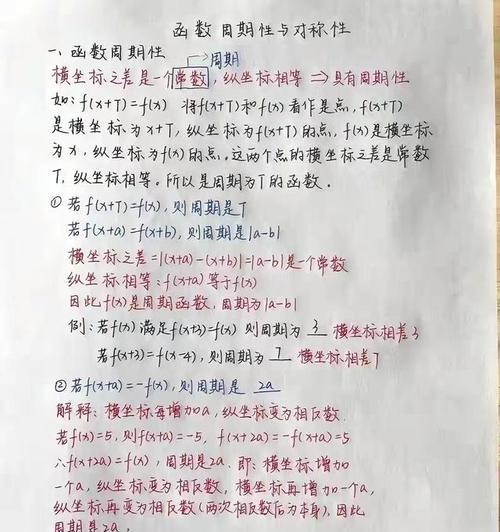 函数周期性与对称性
一、函数周期性
周期
横坐标之差是一个常数，纵坐标相等 ⇒具有周期性
如：f(x+T)=f(x) 将f(x+T)和f(x)看作是点，f(x+T)
是横坐标为x+T，纵坐标为f(x+T)的点，f(x)是横坐标
为x，纵坐标为f(x)的点。这两个点的横坐标之差是常数
T，纵坐标相等。所以是周期为T的函数．
① 若f(x+T)=f(x)，则周期是T
若f(x+a)=f(x+b)，则周期是|a-b|
横坐标之差=|(x+a)-(x+b)|=|a-b|是一个常数
纵坐标相等：f(x+a)等于f(x)
因此f(x)是周期函数，周期为|a-b|
例：若f(x)满足f(x+3)=f(x) 则周期为 3 横坐标相差3
若f(x+3)=f(x-4)，则周期为 7 横坐标相差7
② 若f(x+a)=-f(x)，则周期是 2a
解释：横坐标再增加a，纵坐标变为相反数．
若f(x)=5，则f(x+a)=-5，f(x+2a)=-f(x+a)=5
∴f(x+2a)=f(x)，周期是2a．即：横坐标增加
一个a，纵坐标变为相反数，横坐标再增加一个a，
纵坐标再变为相反数(两次相反数后为本身)，因此
周期是2a．